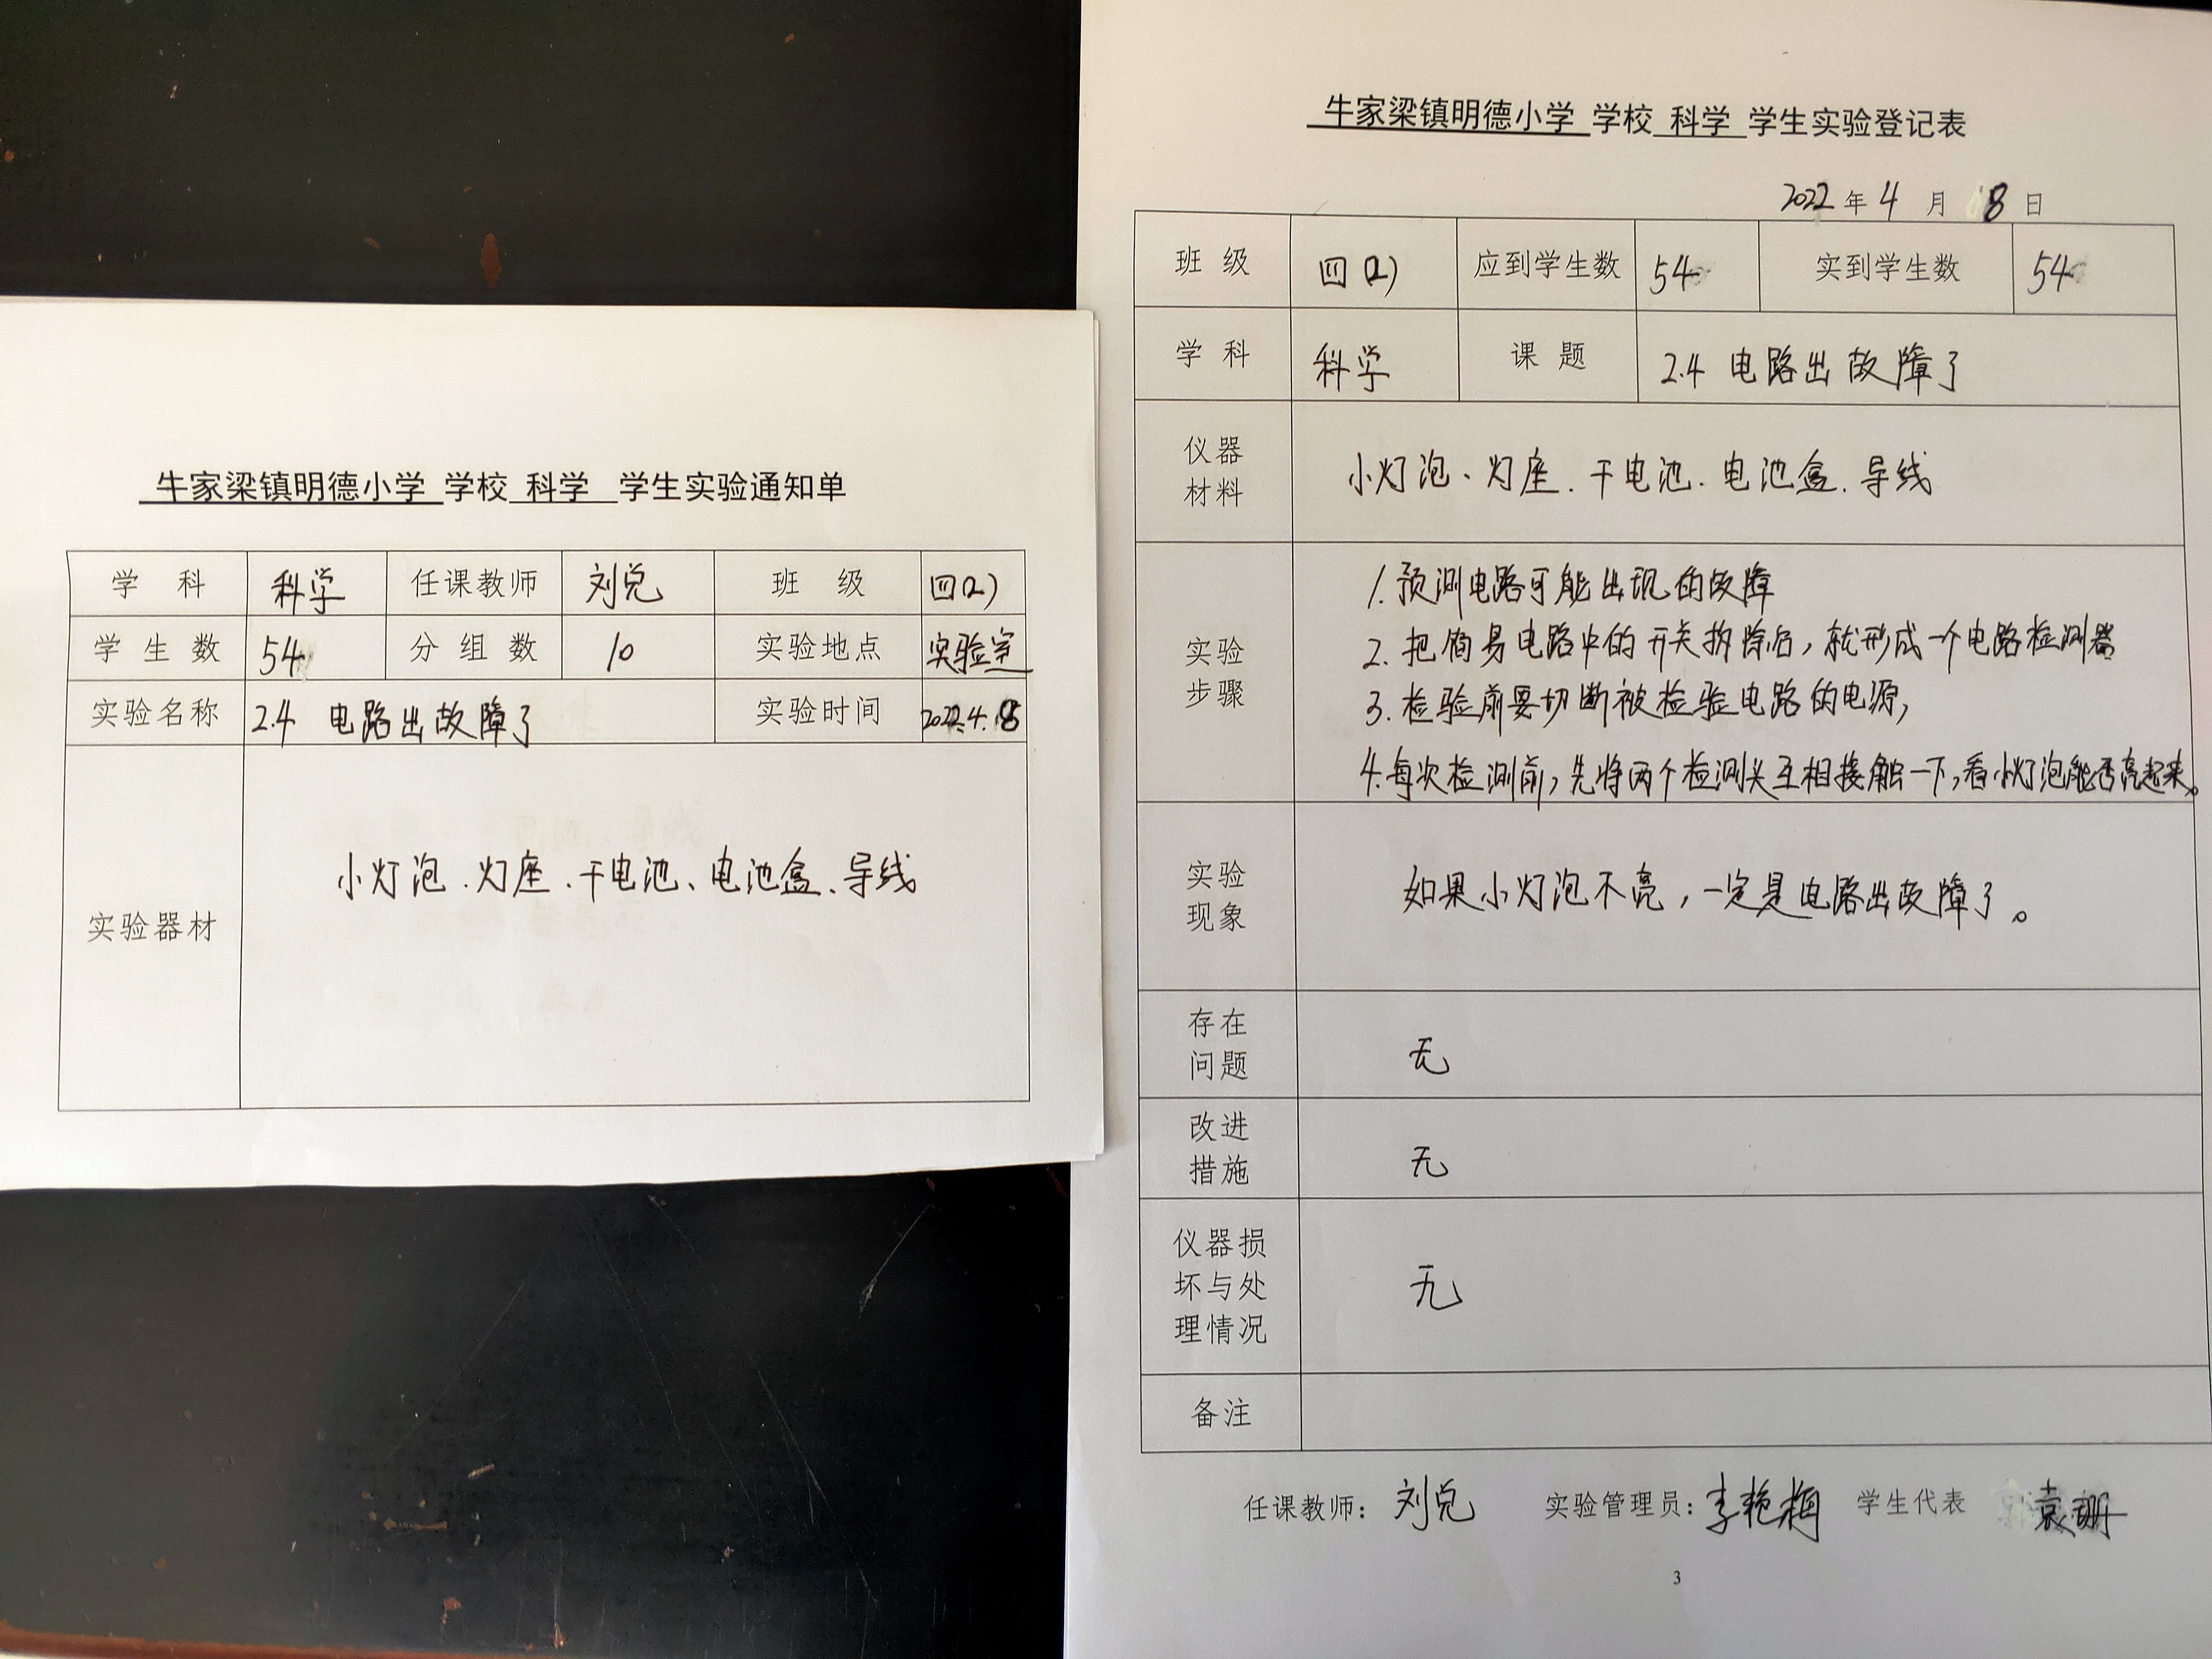 牛家梁镇明德小学 学校 科学 学生实验通知单
学 科 科学 任课教师 刘兑 班 级 四(2)
学 生 数 54 分 组 数 10 实验地点 实验室
实验名称 2.4 电路出故障了 实验时间 2022.4.8
实验器材 小灯泡、灯座、干电池、电池盒、导线
牛家梁镇明德小学 学校 科学 学生实验登记表
2022 年 4 月 8 日
班 级 四(2) 应到学生数 54 实到学生数 54
学 科 科学 课 题 2.4 电路出故障了
仪器
材料
小灯泡、灯座、干电池、电池盒、导线
实验
步骤
1.预测电路可能出现的故障
2.把简易电路中的开关拆除后,就形成一个电路检测器
3.检验前要切断被检验电路的电源,
4.每次检测前,先将两个检测头互相接触一下,看小灯泡能否亮起来。
实验
现象
如果小灯泡不亮,一定是电路出故障了。
存在
问题
无
改进
措施
无
仪器损
坏与处
理情况
无
备注
任课教师: 刘兑 实验管理员: 李艳梅 学生代表 袁珊
3